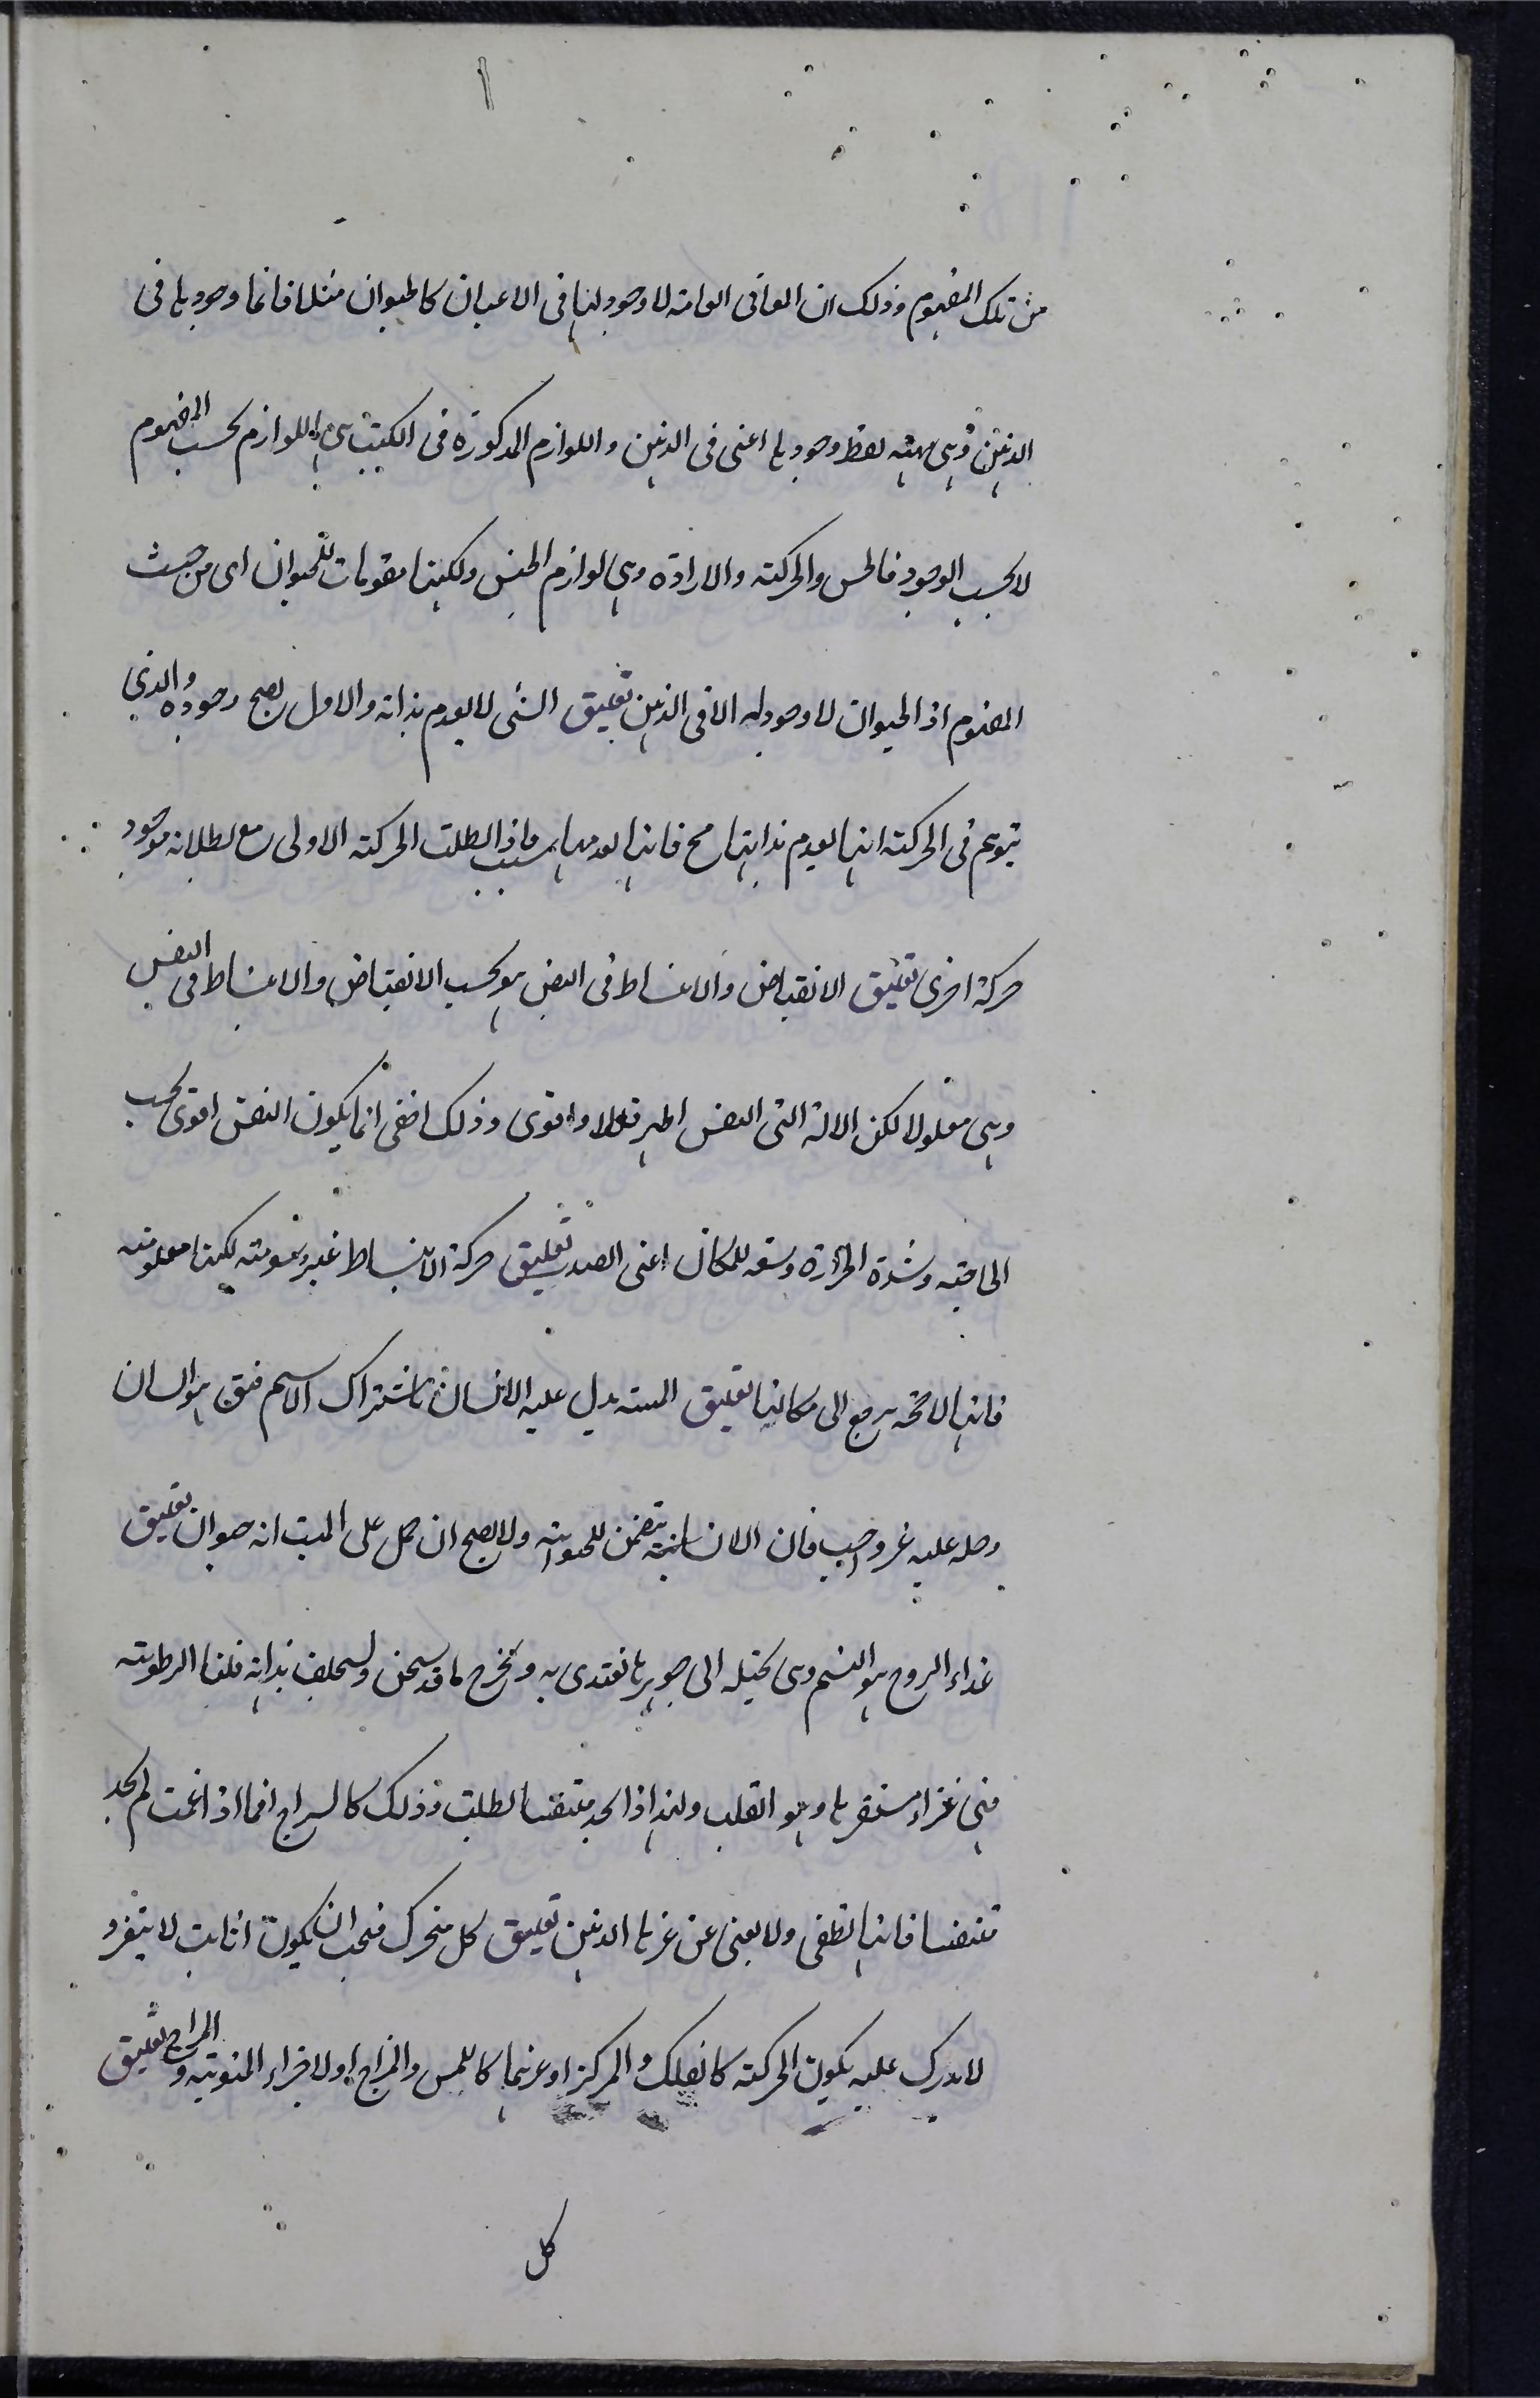 من تلك المفهوم وذلك ان المعانى العامة لا وجود لها فى الاعيان كالحيوان مثلا فانما وجودها فى
الذهن وهى وجودها اعنى فى الذهن واللوازم المذكورة فى الكتب هى اللوازم بحسب المفهوم
لا بحسب الوجود فالحس والحركة والارادة وهى لوازم الجنس ولكنها مقومات للحيوان اى من حيث
المفهوم اذ الحيوان لا وجود له الا فى الذهن تعليق الشئ لا يعدم بذاته والا لم يصح وجوده والذى
يتوهم فى الحركة انها يعدم بذاتها مح فانها لعدمها سبب فاذا بطلت الحركة الاولى مع بطلانه موجود
حركة اخرى تعليق الانقباض والانبساط فى النبض هو بحسب الانقباض والانبساط فى النفس
وهى معلولا لكن الالة التى النفس واقوى وذلك انما يكون النفس اقوى بحسب
الحاجة وشدة الحرارة وسعة للمكان اعنى الصدر تعليق حركة الانبساط غير لكنها معلومة
فانها لا مح يرجع الى مكانها تعليق الميت يدل عليه الانسان باشتراك الاسم فق هو انسان
وحمله عليه غير واجب فان الانسانية يتضمن للحيوانية ولا يصح ان حمل على الميت انه حيوان تعليق
غذاء الروح هو النسيم وهى تحيله الى جوهرها تغتذى به وتخرج ما قد سخن بذاته الرطوبة
فهى غذاء مستقرها وهو القلب ولهذا اذا لم تجد متنفسا بطلت وذلك كالسراج اذا غمت لم تجد
متنفسا فانها تطفى ولا يغنى عن غيرها الدهن تعليق كل متحرك فيجب ان يكون ثابت لا يتغير و
لا يدرك عليه يكون الحركة كالفلك والمركز او غيرهما كاللمس والمزاج اولا المنوية والمزاج تعليق
كل